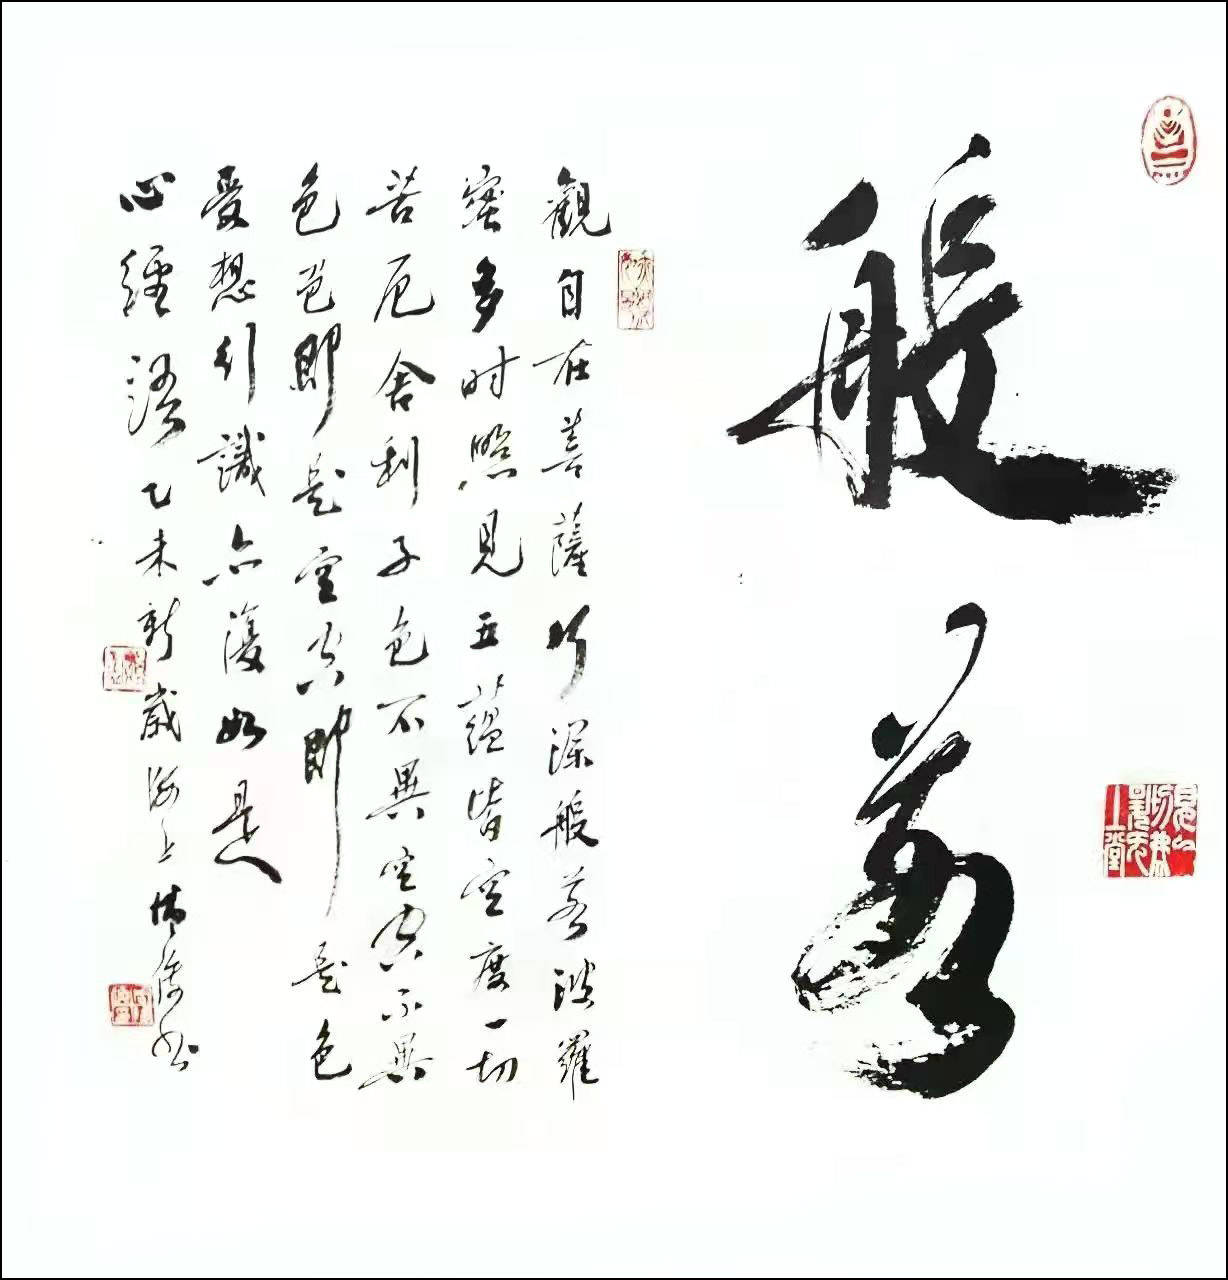 般若
觀自在菩薩行深般若波羅
蜜多时照見五蘊皆空度一切
苦厄舍利子色不異空空不異
色色即是空空即是色
受想行識亦復如是
心經語乙未新歲海上書